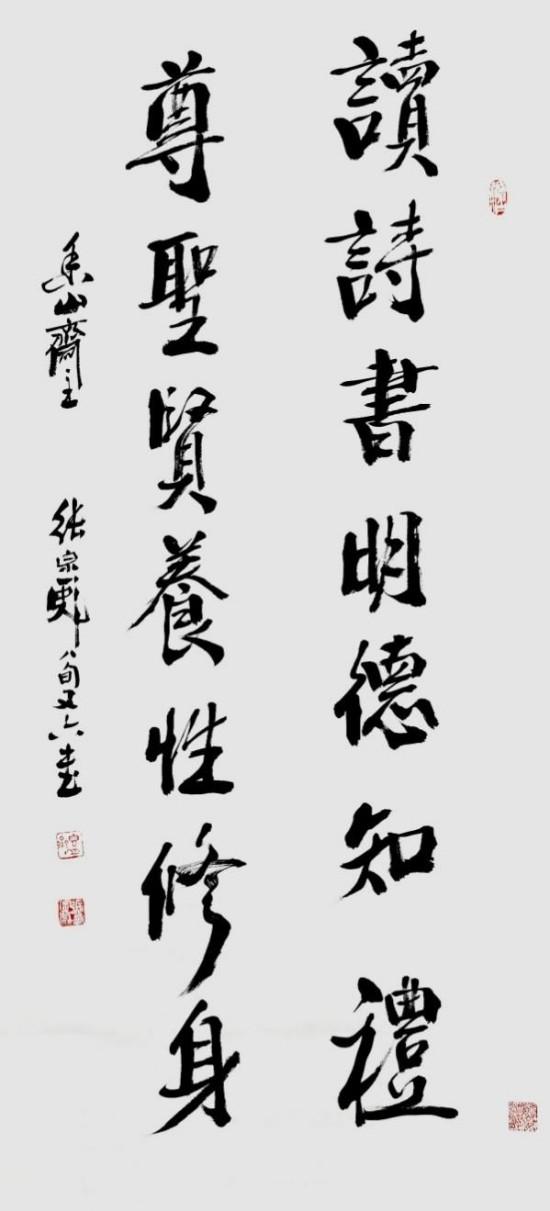 讀詩書明德知禮
尊聖賢養性修身
山齋主
張宗彪八旬又六書